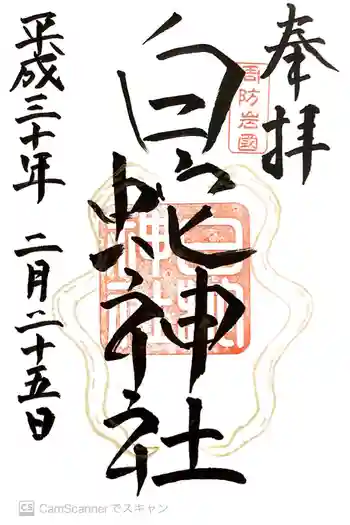 奉拝
周防岩國
白蛇神社
白蛇神社
平成三十年 二月二十五日
CS CamScannerでスキャン